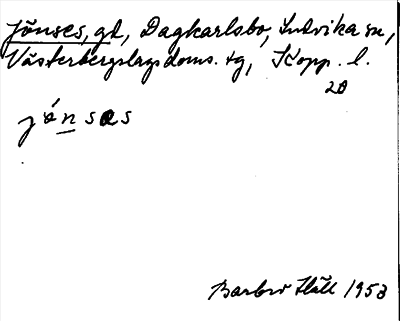 Jönses, gd, Dagkarlsbo, Ludvika sn,
Västerbergslags doms. tg, Kopp. l.
20
jónsəs
Barbro Häll 1958